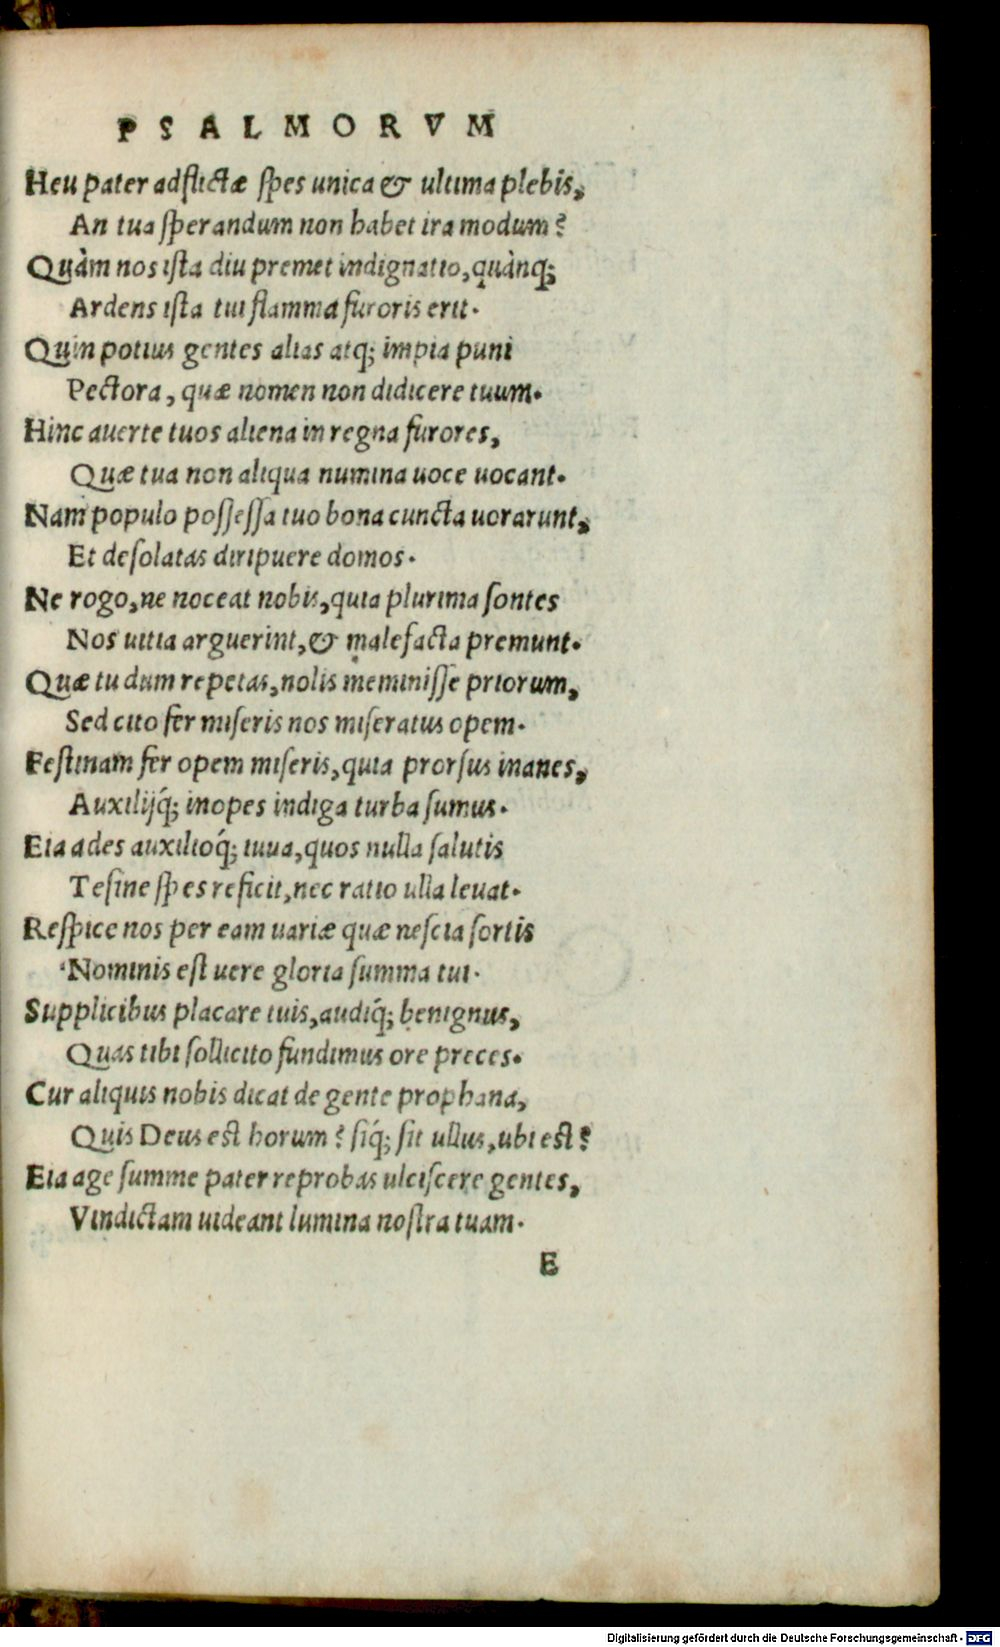 PSALMORVM
Heu pater adflictæ spes unica & ultima plebis,
An tua sperandum non habet ira modum?
Quàm nos ista diu premet indignatio, quànq;
Ardens ista tui flamma furoris erit.
Quin potius gentes alias atq; impia puni
Pectora, quæ nomen non didicere tuum.
Hinc auerte tuos aliena in regna furores,
Quæ tua non aliqua numina uoce uocant.
Nam populo possessa tuo bona cuncta uorarunt,
Et desolatas diripuere domos.
Ne rogo, ne noceat nobis, quia plurima sontes
Nos uitia arguerint, & malefacta premunt.
Quæ tu dum repetas, nolis meminisse priorum,
Sed cito fer miseris nos miseratus opem.
Festinam fer opem miseris, quia prorsus inanes,
Auxilijq́; inopes indiga turba sumus.
Eia ades auxilioq́; iuua, quos nulla salutis
Te sine spes reficit, nec ratio ulla leuat.
Respice nos per eam uariæ quæ nescia sortis
Nominis est uere gloria summa tui.
Supplicibus placare tuis, audiq́; benignus,
Quas tibi sollicito fundimus ore preces.
Cur aliquis nobis dicat de gente prophana,
Quis Deus est horum? siq́; sit ullus, ubi est?
Eia age summe pater reprobas ulciscere gentes,
Vindictam uideant lumina nostra tuam.
E
Digitalisierung gefördert durch die Deutsche Forschungsgemeinschaft - DFG